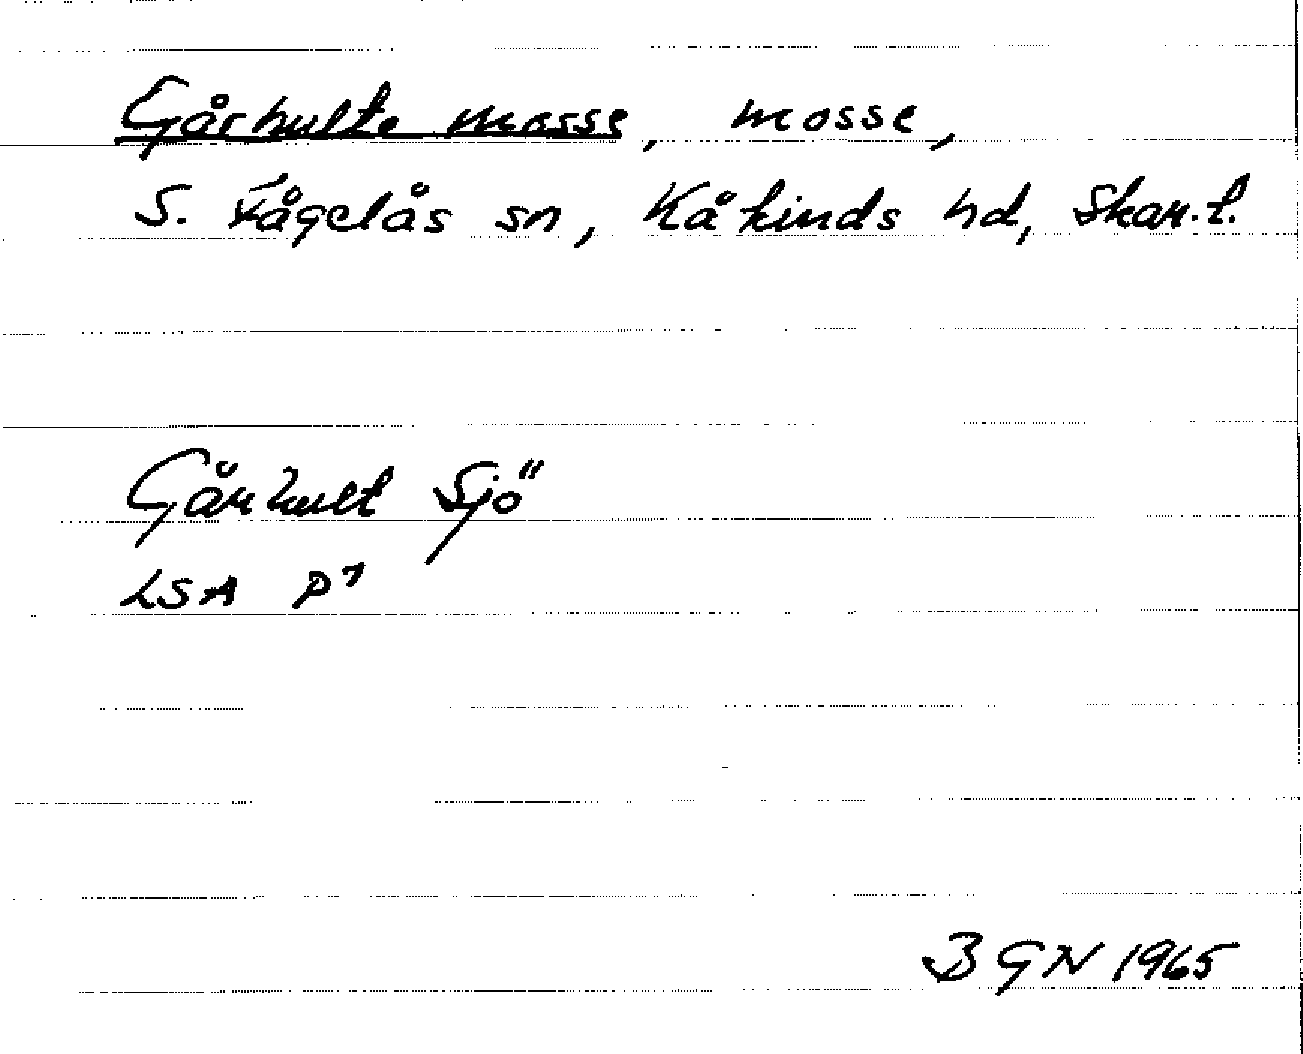 Gårhulte mosse, mosse,
S. Fågelås sn, Kåkinds hd, Skar.l.
Gårhult Sjö
LSA P7
BGN 1965